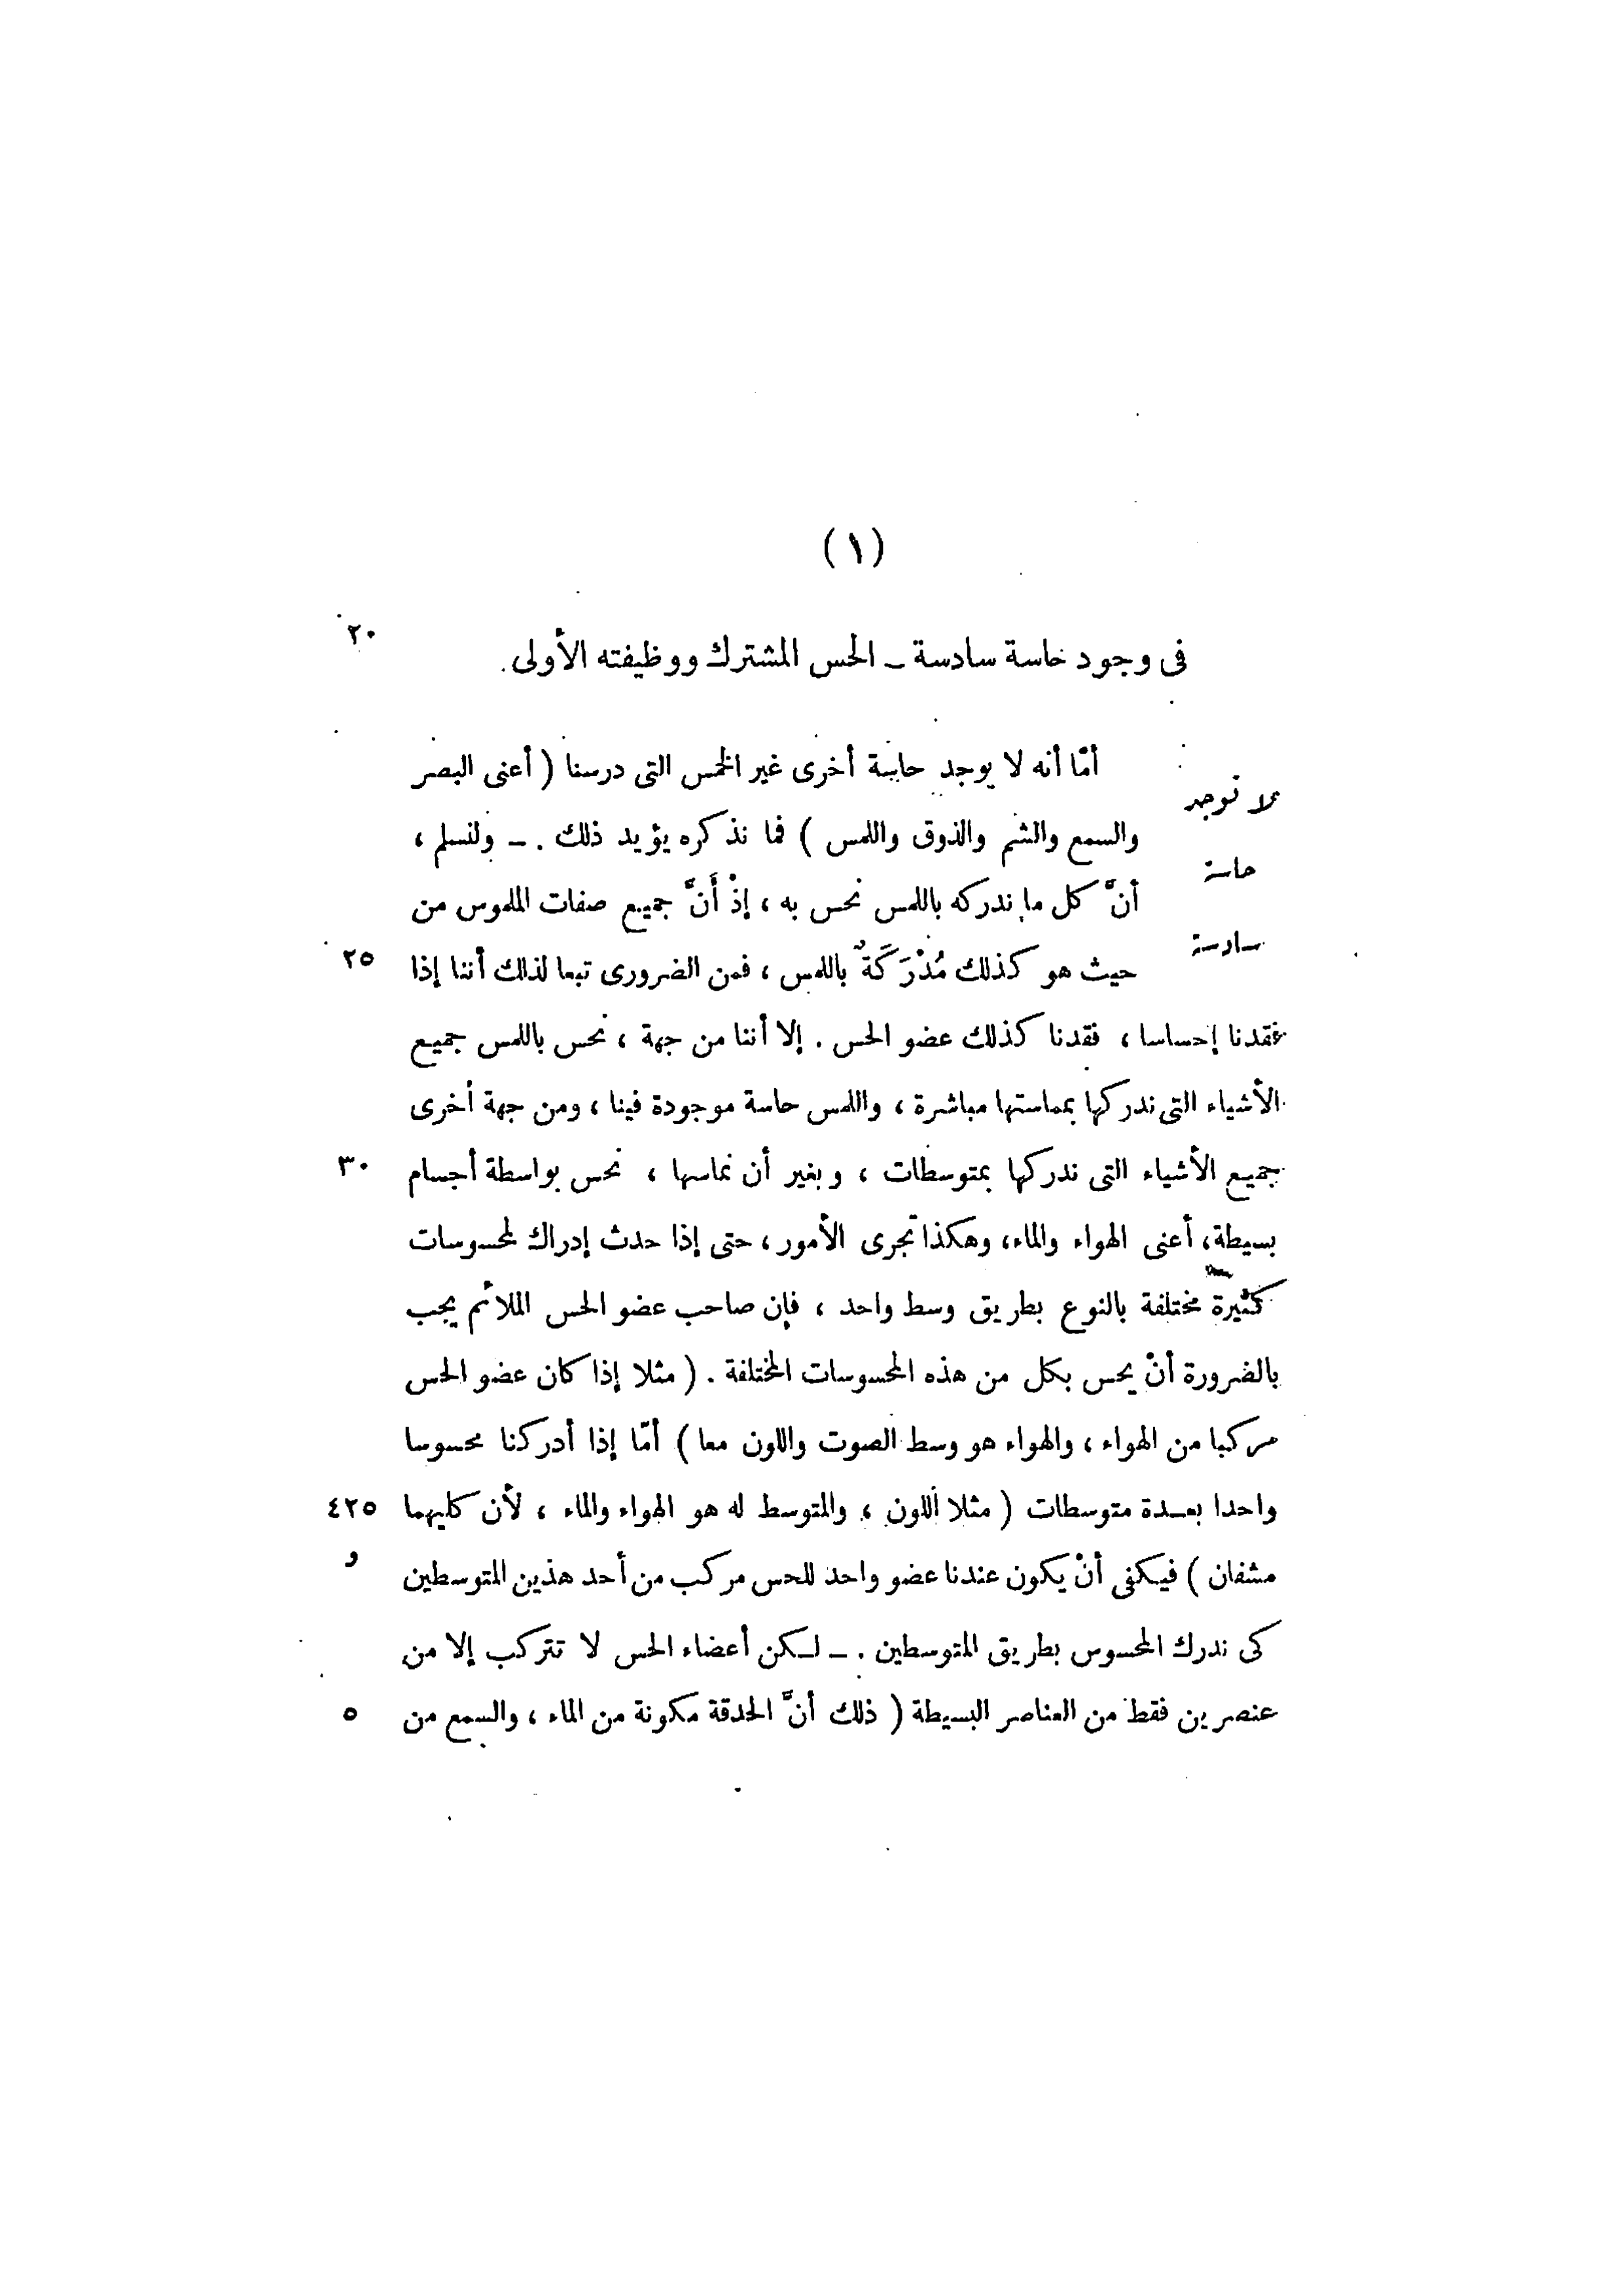 (١)
٢٠
فى وجود حاسة سادسة – الحس المشترك ووظيفته الأولى.
أمّا أنه لا يوجد حاسة أخرى غير الخمس التى درسنا ( أعنى البصر
لا توجد
والسمع والشم والذوق واللمس ) فما نذكره يؤيد ذلك . – ولنسلم ،
حاسة
أنَّ كل ما ندركه باللمس نحس به ، إذْ أَنَّ جميع صفات الملموس من
سادسة
حيث هو كذلك مُدْرَكَةٌ باللمس ، فمن الضرورى تبعا لذلك أننا إذا ٢٥
فقدنا إحساسا ، فقدنا كذلك عضو الحس . إلا أننا من جهة ، نحس باللمس جميع
الأشياء التى ندركها بمماستها مباشرة ، واللمس حاسة موجودة فينا ، ومن جهة أخرى
جميع الأشياء التى ندركها بمتوسطات ، وبغير أن نماسها ، نحس بواسطة أجسام ٣٠
بسيطة، أعنى الهواء والماء، وهكذا تجرى الأمور ، حتى إذا حدث إدراك لمحسوسات
كثيرة مختلفة بالنوع بطريق وسط واحد ، فإن صاحب عضو الحس الملائم يجب
بالضرورة أنْ يحس بكل من هذه المحسوسات المختلفة . ( مثلا إذا كان عضو الحس
مركبا من الهواء ، والهواء هو وسط الصوت واللون معا ) أمّا إذا أدركنا محسوسا
واحدا بعدة متوسطات ( مثلا اللون ، والمتوسط له هو الهواء والماء ، لأن كليهما ٤٢٥
و
مشفان ) فيكفى أنْ يكون عندنا عضو واحد للحس مركب من أحد هذين المتوسطين
كى ندرك المحسوس بطريق المتوسطين . – لكن أعضاء الحس لا تتركب إلا من
عنصرين فقط من العناصر البسيطة ( ذلك أنَّ الحدقة مكونة من الماء ، والسمع من ٥